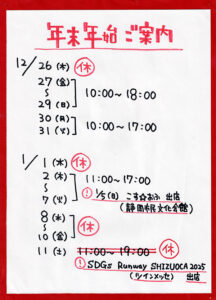 年末年始 ご案内
12/26(木) 休
27(金)
〜 10:00〜18:00
29(日)
30(月)
31(火) 10:00〜17:00
1/1(木) 休
2(木)
〜 11:00〜17:00
7(火) ! 1/5(日) こす☆おふ 出店
(静岡市民文化会館)
8(水)
〜 休
10(金)
11(土) 11:00〜19:00 休
! SDGs Runway SHIZUOCA 2025
(ツインメッセ) 出店